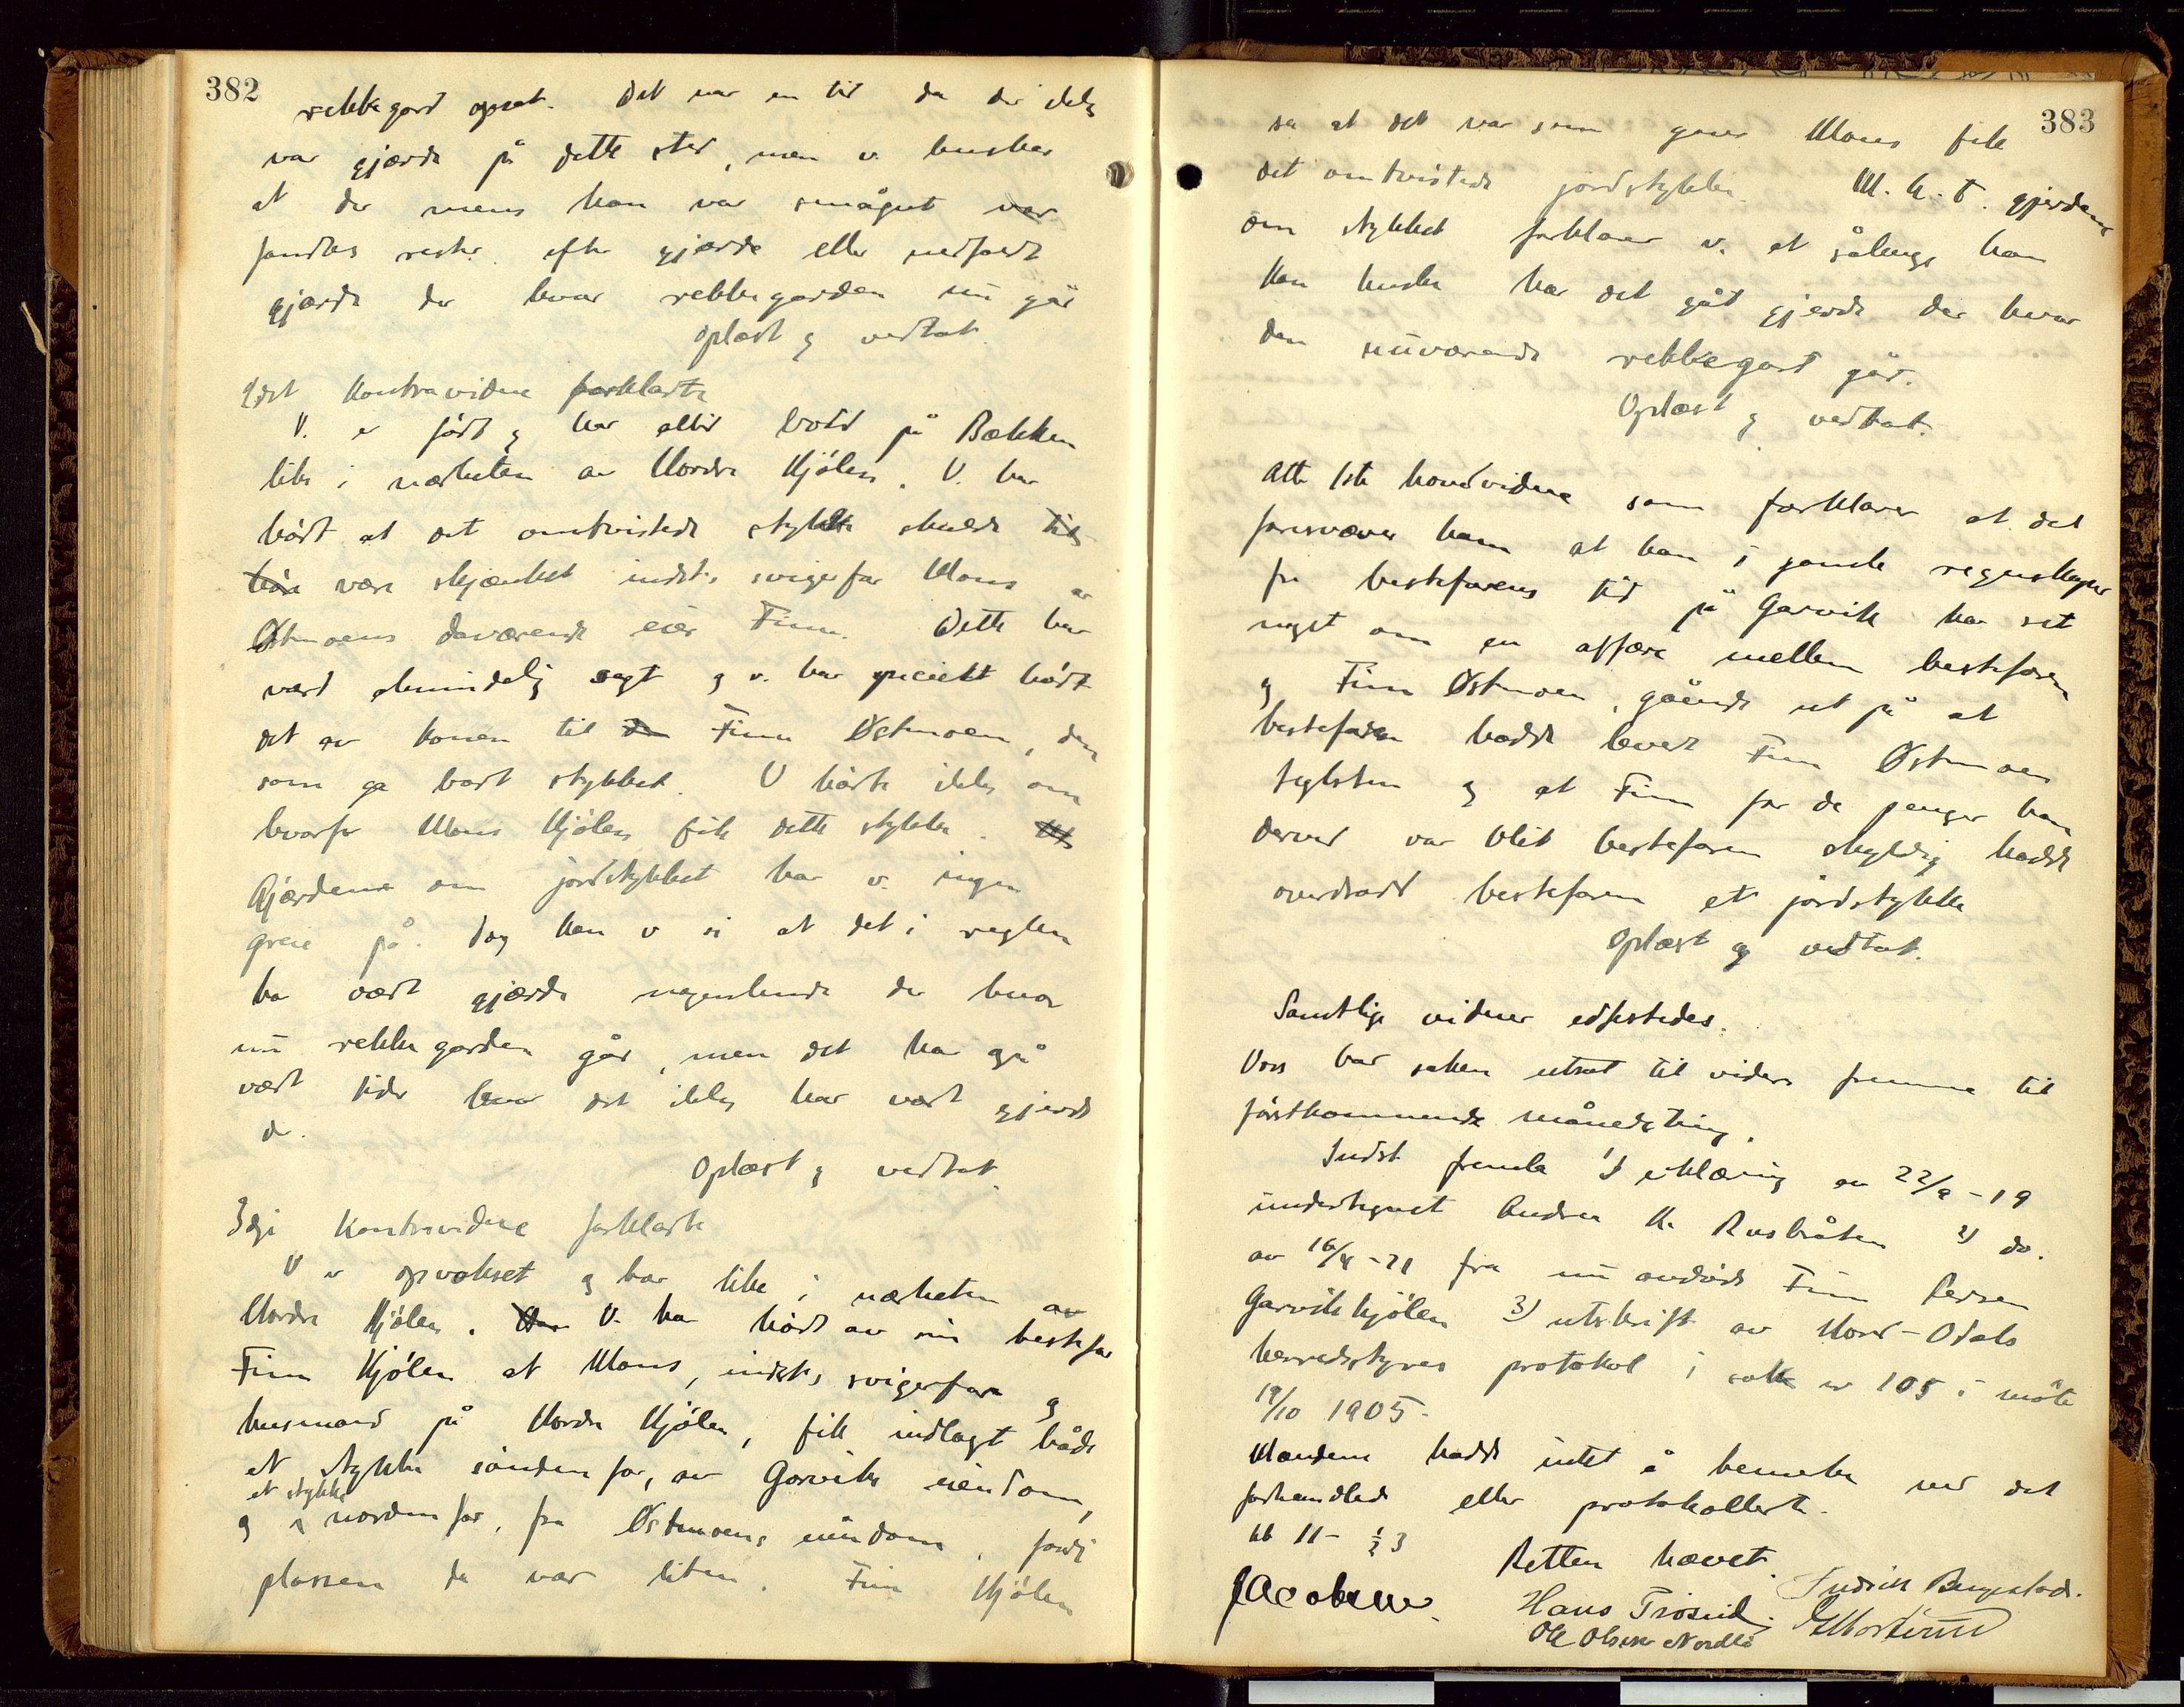 382
rekkegard opsat. Det var en tid da der ikke
var gjærde på dette sted, men v. husker
at der mens han var smågut var
fandtes rester efter gjærde eller nedfaldt
gjærde der hvor rekkegarden nu går
Oplæst og vedtat.
2det Kontravidne forklarte
V. er født og har altid bodd på Bækken
like i nærheten av Nordre Kjølen. V. har
hørt at det omtvistede stykke skulde til
høre være skjænket indst.s svigerfar Mons av
Østmoens daværende eier Finn. Dette har
vært almindelig sagt og v. har specielt hørt
det av konen til den Finn Østmoen, den
som ga bort stykket. V hørte ikke om
hvorfor Mons Kjølen fik dette stykke.
Gjærdene om jordstykket har v. ingen
greie på. Dog kan v si at det i reglen
har vært gjærde nogenlunde der hvor
nu rekkegarden går, men det har også
vært tider hvor det ikke har vært gjerde
der.
Oplæst og vedtat.
3dje Kontravidne forklarte
V er opvokset og bor like i nærheten av
Nordre Kjølen. Han V. har hørt av sin bestefar
Finn Kjølen at Mons, indst.s svigerfar og
husmand på Nordre Kjølen, fik indlagt både
et stykke søndenfor, av Garviks eiendom,
et stykke
og nordenfor, fra Østmoens eiendom, fordi
plassen da var liten. Finn Kjølen
383
sa at det var som gave Mons fik
det omtvistede jordstykke. M.h.t. gjerdene
om stykket forklarer v. at sålenge han
kan huske har det gåt gjerde der hvor
den nuværende rekkegard går.
Oplæst og vedtat.
Atter 1ste hovedvidne som forklarer at det
foresvæver ham at han i gamle regnskaper
fra bestefarens tid på Garvik har set
noget om en affære mellem bestefaren
og Finn Østmoen, gående ut på at
bestefaren hadde levert Finn Østmoen
teglsten og at Finn for de penger han
derved var blit bestefaren skyldig hadde
overdradd bestefaren et jordstykke
Oplæst og vedtat.
Samtlige vidner edfestedes.
Voss bar saken utsat til videre fremme til
førstkommende månedsting.
Indst fremla 1) erklæring av 22/9 - 19
undertegnet Andrea K. Rusbråten 2) do.
av 16/4 - 21 fra nu avdøde Finn Persen
Garvikkjølen 3) utskrift av Nord-Odals
herredsstyres protokol i sak nr 105 i møte
19/10 1905.
Mændene hadde intet å bemerke ved det
forhandlede eller protokollerte.
kl 11 - ½3
Retten hævet.
Jacobsen.
Hans Trøseid.
Ole Olsen Nordli